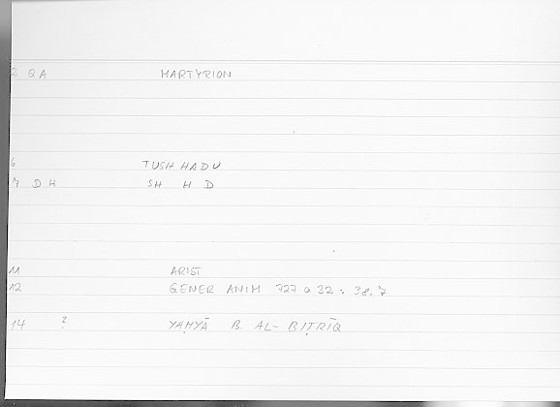 2 QA MARTYRION
6 TUSH HADU
7 DH SH H D
11 ARIST
12 GENER ANIM 727 a 32 : 38.7
14 ? YAḤYĀ B. AL-BIṬRĪQ